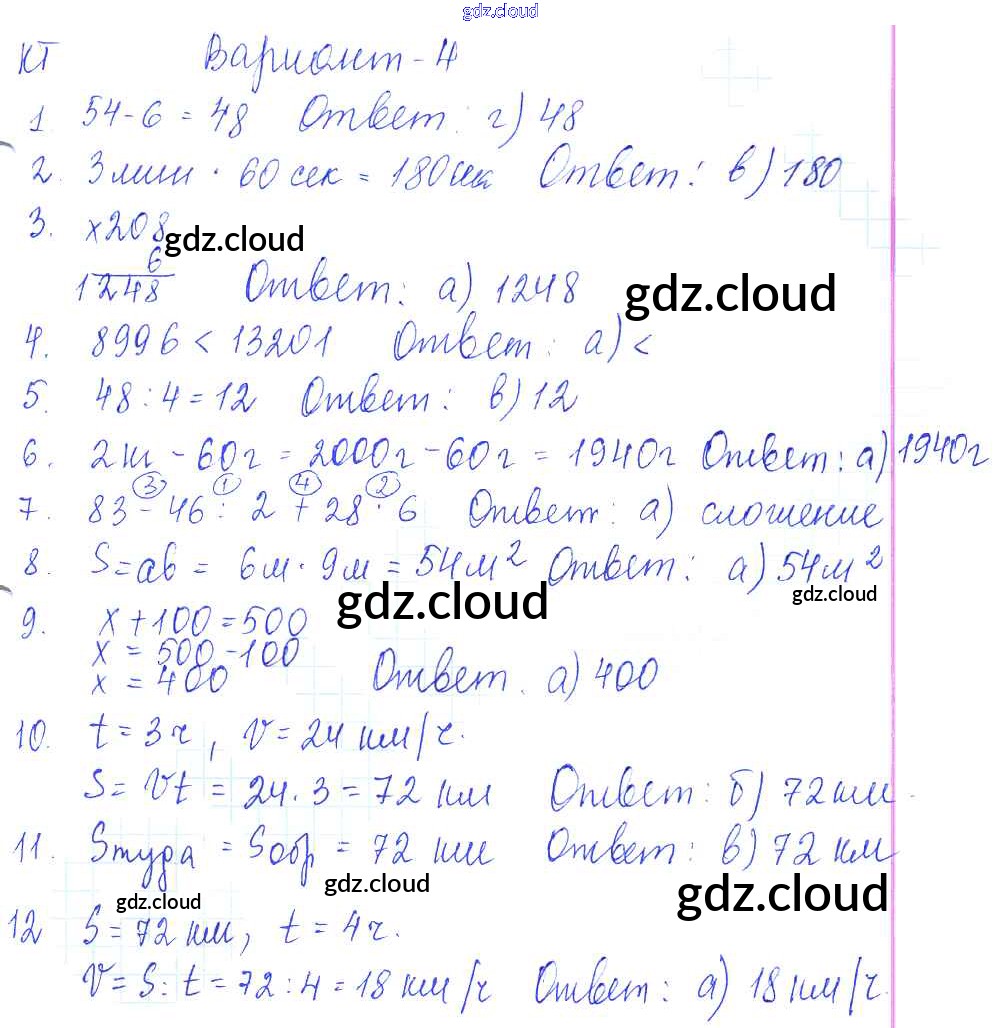 gdz.cloud
КТ Вариант-4
1. 54-6 = 48 Ответ: г) 48
2. 3 мин · 60 сек = 180 сек Ответ: в) 180
3. x208
gdz.cloud
6
1248 Ответ: а) 1248
gdz.cloud
4. 8996 < 13201 Ответ: а) <
5. 48 : 4 = 12 Ответ: в) 12
6. 2 кг - 60 г = 2000г - 60 г = 1940г Ответ: а) 1940г
3 1 4 2
7. 83 - 46 : 2 + 28 · 6 Ответ: а) сложение
8. S=ab = 6м · 9м = 54м² Ответ: а) 54м²
gdz.cloud gdz.cloud
9. x+100=500
x = 500-100
x = 400 Ответ. а) 400
10. t = 3ч, v = 24 км/ч.
S = vt = 24 · 3 = 72 км Ответ: б) 72 км.
11. Sтуда = Sобр = 72 км Ответ: в) 72 км
gdz.cloud gdz.cloud gdz.cloud
12 S = 72 км, t = 4ч.
V = S : t = 72 : 4 = 18 км/ч Ответ: а) 18 км/ч.